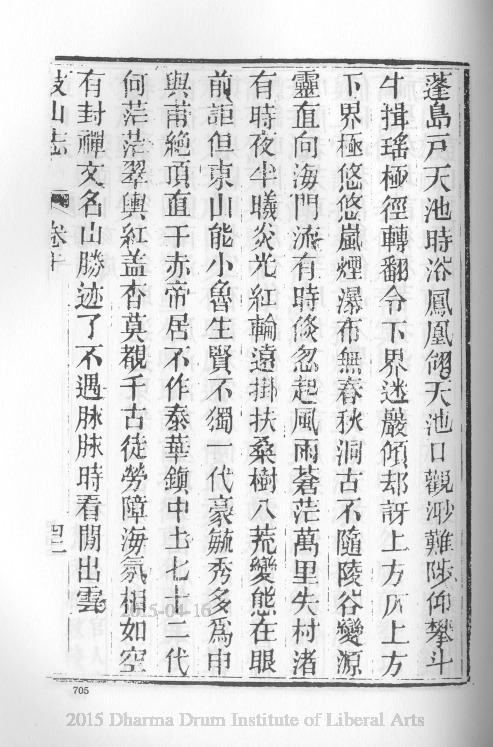 蓬島戸天池時浴鳳凰翎天池口觀渺難陟仰攀斗
牛揖瑤極徑轉翻令下界迷巖傾却訝上方仄上方
下界極悠悠嵐煙瀑布無春秋洞古不隨陵谷變源
靈直向海門流有時倐忽起風雨蒼茫萬里失村渚
有時夜半曦炎光紅輪遠掛扶桑樹八荒變態在眼
前詎但東山能小魯生賢不獨一代豪毓秀多爲申
與甫絶頂直干赤帝居不作泰華鎮中土七十二代
何茫茫翠輿紅盖杳莫覩千古徒勞障海氛相如空
有封禪文名山勝迹了不遇脉脉時看閒出雲
鼓山志 卷十 四二
705
2015-04-16
2015 Dharma Drum Institute of Liberal Arts